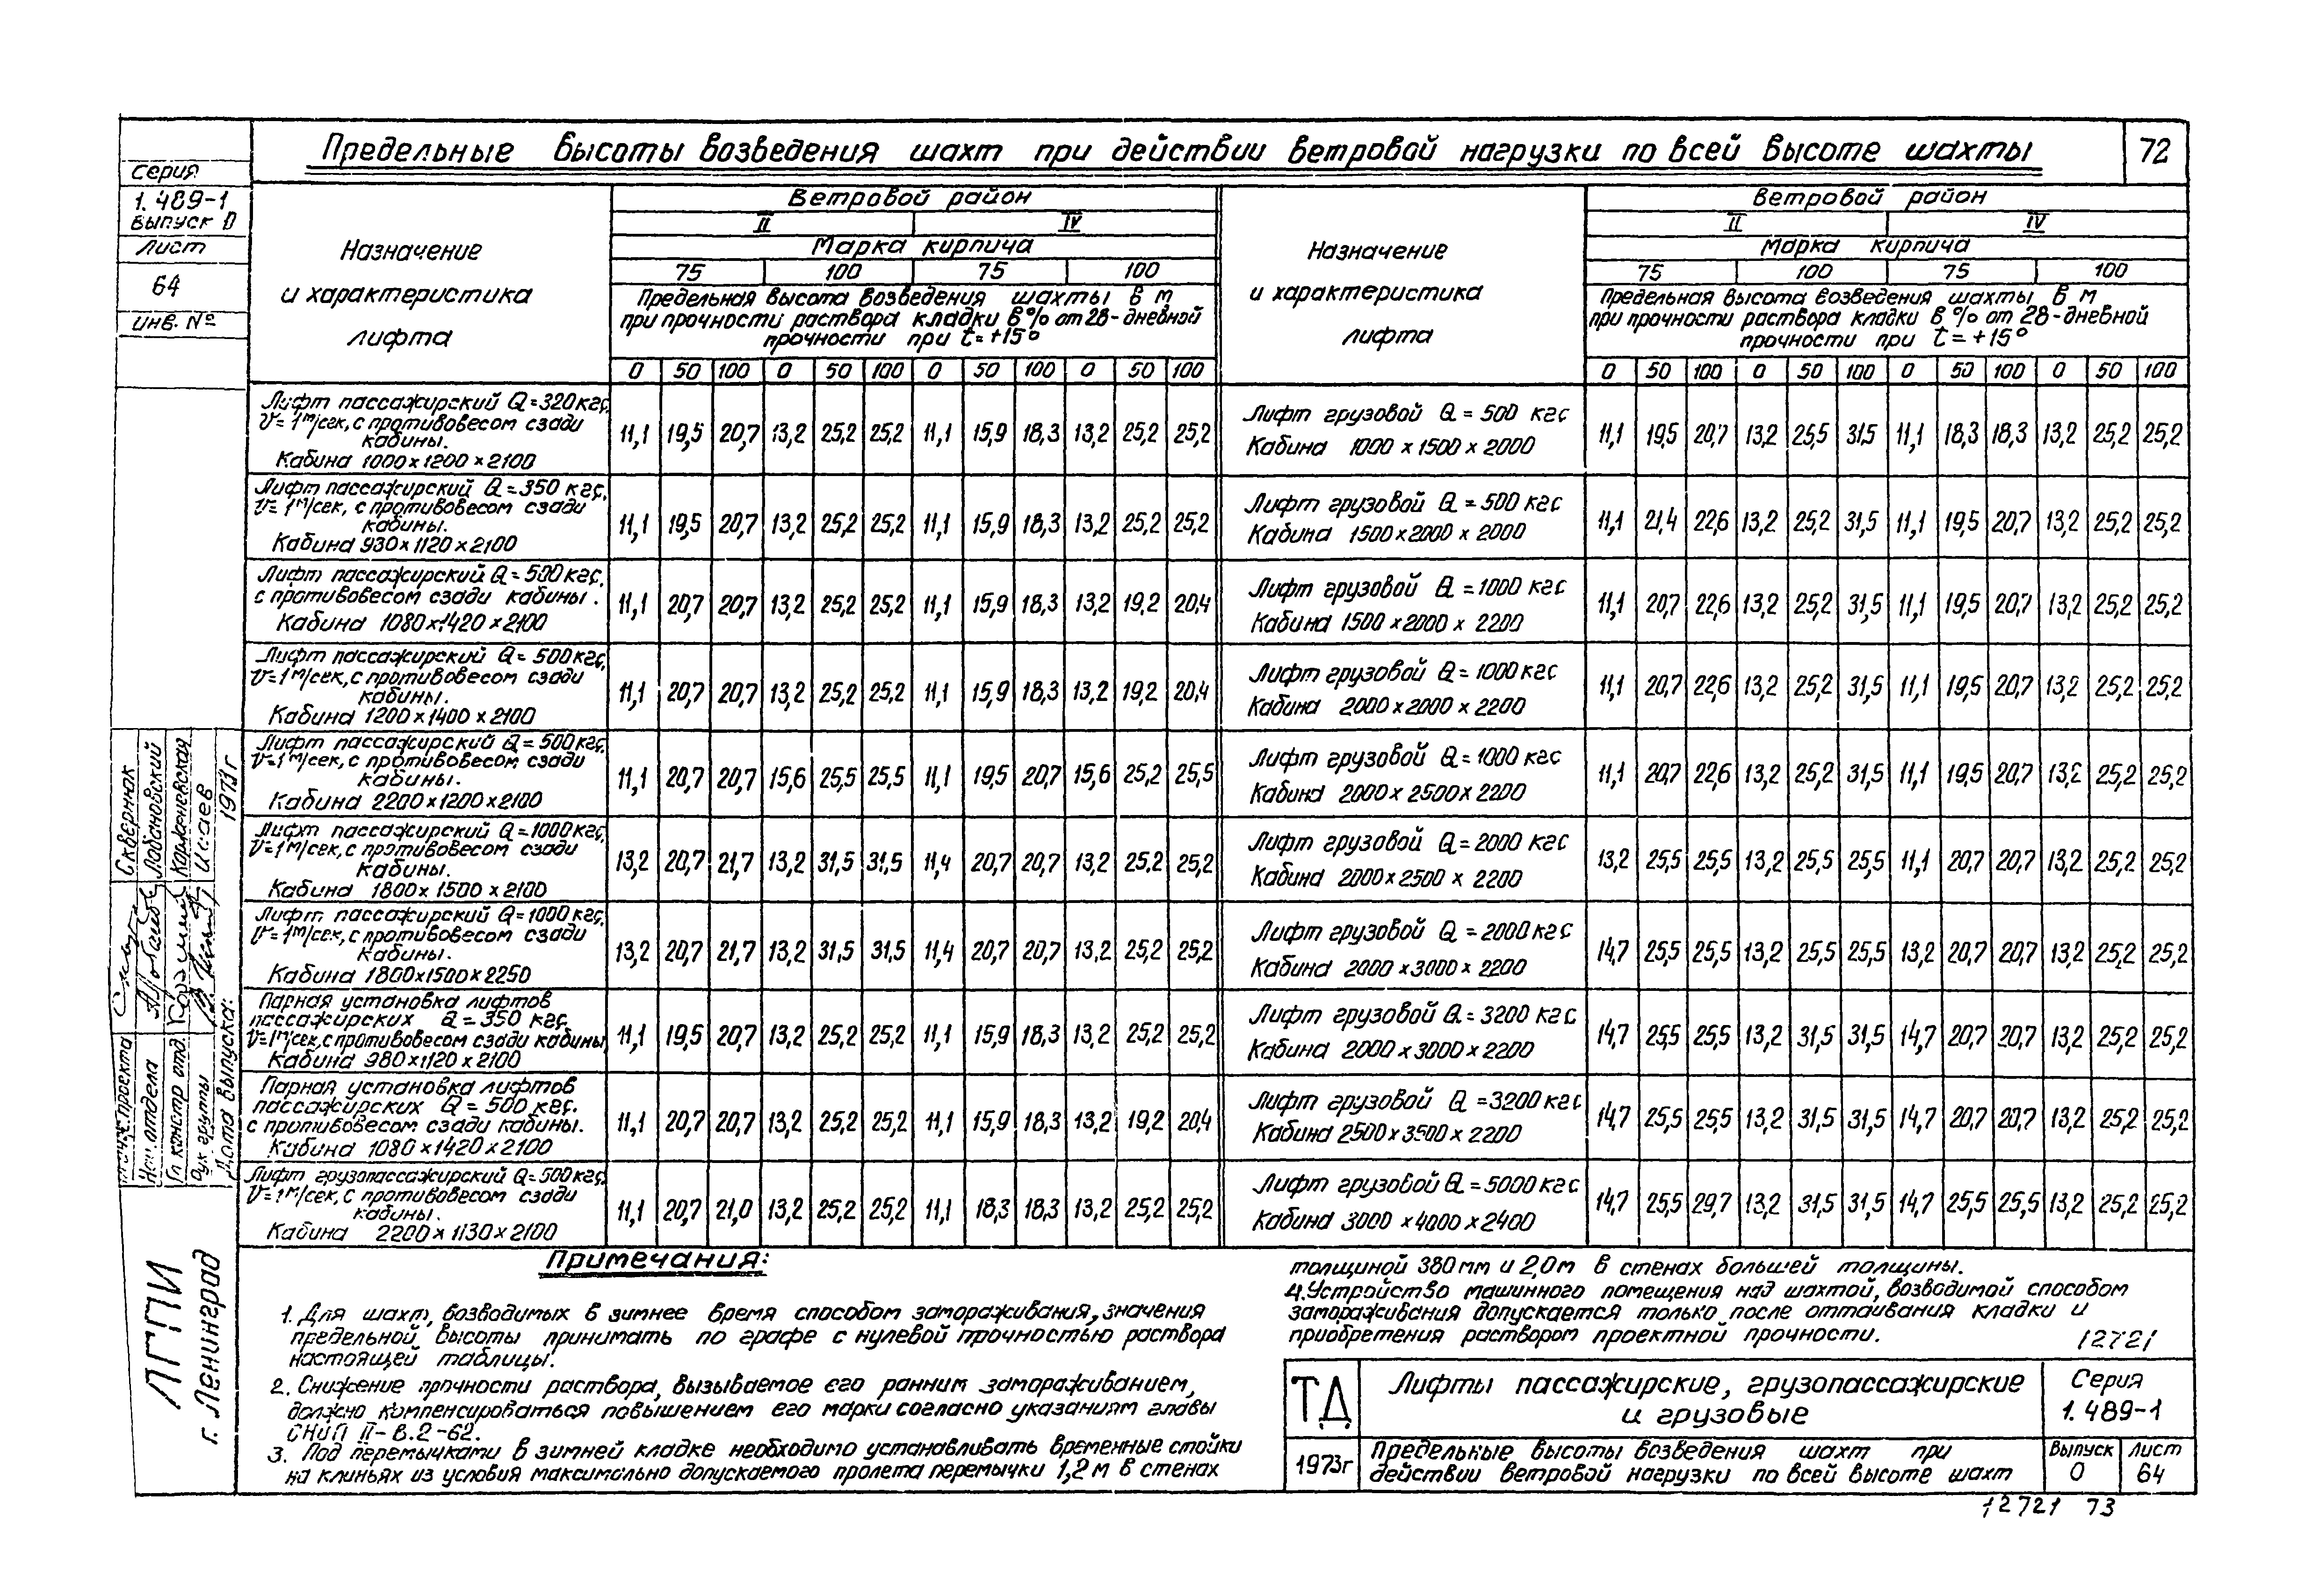 Предельные высоты возведения шахт при действии ветровой нагрузки по всей высоте шахты
72
Серия
1.489-1
выпуск 0
Лист
64
Инв. №
Назначение
и характеристика
лифта
Ветровой район
II IV
Марка кирпича
75 100 75 100
Предельная высота возведения шахты в м
при прочности раствора кладки в % от 28-дневной
прочности при t=+15°
0 50 100 0 50 100 0 50 100 0 50 100
Лифт пассажирский Q=320кгс,
V=1м/сек, с противовесом сзади
кабины.
Кабина 1000×1200×2100
11,1 19,5 20,7 13,2 25,2 25,2 11,1 15,9 18,3 13,2 25,2 25,2
Лифт пассажирский Q=350 кгс,
V=1м/сек, с противовесом сзади
кабины.
Кабина 930×1120×2100
11,1 19,5 20,7 13,2 25,2 25,2 11,1 15,9 18,3 13,2 25,2 25,2
Лифт пассажирский Q=500кгс,
с противовесом сзади кабины.
Кабина 1080×1420×2100
11,1 20,7 20,7 13,2 25,2 25,2 11,1 15,9 18,3 13,2 19,2 20,4
Лифт пассажирский Q=500кгс,
V=1м/сек, с противовесом сзади
кабины.
Кабина 1200×1400×2100
11,1 20,7 20,7 13,2 25,2 25,2 11,1 15,9 18,3 13,2 19,2 20,4
Лифт пассажирский Q=500кгс,
V=1м/сек, с противовесом сзади
кабины.
Кабина 2200×1200×2100
11,1 20,7 20,7 15,6 25,5 25,5 11,1 19,5 20,7 15,6 25,2 25,5
Лифт пассажирский Q=1000кгс,
V=1м/сек, с противовесом сзади
кабины.
Кабина 1800×1500×2100
13,2 20,7 21,7 13,2 31,5 31,5 11,4 20,7 20,7 13,2 25,2 25,2
Лифт пассажирский Q=1000кгс,
V=1м/сек, с противовесом сзади
кабины.
Кабина 1800×1500×2250
13,2 20,7 21,7 13,2 31,5 31,5 11,4 20,7 20,7 13,2 25,2 25,2
Парная установка лифтов
пассажирских Q=350 кгс,
V=1м/сек, с противовесом сзади кабины
Кабина 980×1120×2100
11,1 19,5 20,7 13,2 25,2 25,2 11,1 15,9 18,3 13,2 25,2 25,2
Парная установка лифтов
пассажирских Q=500 кгс.
с противовесом сзади кабины.
Кабина 1080×1420×2100
11,1 20,7 20,7 13,2 25,2 25,2 11,1 15,9 18,3 13,2 19,2 20,4
Лифт грузопассажирский Q=500кгс,
V=1м/сек, с противовесом сзади
кабины.
Кабина 2200×1130×2100
11,1 20,7 21,0 13,2 25,2 25,2 11,1 18,3 18,3 13,2 25,2 25,2
Назначение
и характеристика
лифта
Ветровой район
II IV
Марка кирпича
75 100 75 100
Предельная высота возведения шахты в м
при прочности раствора кладки в % от 28-дневной
прочности при t=+15°
0 50 100 0 50 100 0 50 100 0 50 100
Лифт грузовой Q=500 кгс
Кабина 1000×1500×2000
11,1 19,5 20,7 13,2 25,5 31,5 11,1 18,3 18,3 13,2 25,2 25,2
Лифт грузовой Q=500 кгс
Кабина 1500×2000×2000
11,1 21,4 22,6 13,2 25,2 31,5 11,1 19,5 20,7 13,2 25,2 25,2
Лифт грузовой Q=1000 кгс
Кабина 1500×2000×2200
11,1 20,7 22,6 13,2 25,2 31,5 11,1 19,5 20,7 13,2 25,2 25,2
Лифт грузовой Q=1000кгс
Кабина 2000×2000×2200
11,1 20,7 22,6 13,2 25,2 31,5 11,1 19,5 20,7 13,2 25,2 25,2
Лифт грузовой Q=1000 кгс
Кабина 2000×2500×2200
11,1 20,7 22,6 13,2 25,2 31,5 11,1 19,5 20,7 13,2 25,2 25,2
Лифт грузовой Q=2000 кгс
Кабина 2000×2500×2200
13,2 25,5 25,5 13,2 25,5 25,5 11,1 20,7 20,7 13,2 25,2 25,2
Лифт грузовой Q=2000кгс
Кабина 2000×3000×2200
14,7 25,5 25,5 13,2 25,5 25,5 13,2 20,7 20,7 13,2 25,2 25,2
Лифт грузовой Q=3200 кгс
Кабина 2000×3000×2200
14,7 25,5 25,5 13,2 31,5 31,5 14,7 20,7 20,7 13,2 25,2 25,2
Лифт грузовой Q=3200 кгс
Кабина 2500×3500×2200
14,7 25,5 25,5 13,2 31,5 31,5 14,7 20,7 20,7 13,2 25,2 25,2
Лифт грузовой Q=5000 кгс
Кабина 3000×4000×2400
14,7 25,5 29,7 13,2 31,5 31,5 14,7 25,5 25,5 13,2 25,2 25,2
Примечания:
1. Для шахт, возводимых в зимнее время способом замораживания, значения
предельной высоты принимать по графе с нулевой прочностью раствора
настоящей таблицы.
2. Снижение прочности раствора, вызываемое его ранним замораживанием,
должно компенсироваться повышением его марки согласно указаниям главы
СНиП II-В.2-62.
3. Под перемычками в зимней кладке необходимо устанавливать временные стойки
на клиньях из условия максимально допускаемого пролета перемычки 1,2м в стенах
толщиной 380мм и 2,0м в стенах большей толщины.
4. Устройство машинного помещения над шахтой, возводимой способом
замораживания допускается только после оттаивания кладки и
приобретения раствором проектной прочности.
12721
ТД
1973г
Лифты пассажирские, грузопассажирские
и грузовые
Серия
1.489-1
Предельные высоты возведения шахт при
действии ветровой нагрузки по всей высоте шахт
Выпуск
0
Лист
64
12721 73
проекта
Скверняк
Нач. отдела
Лобановский
Гл. констр отд.
Рук группы
Исаев
Дата выпуска:
1973г
ЛГПИ
г. Ленинград